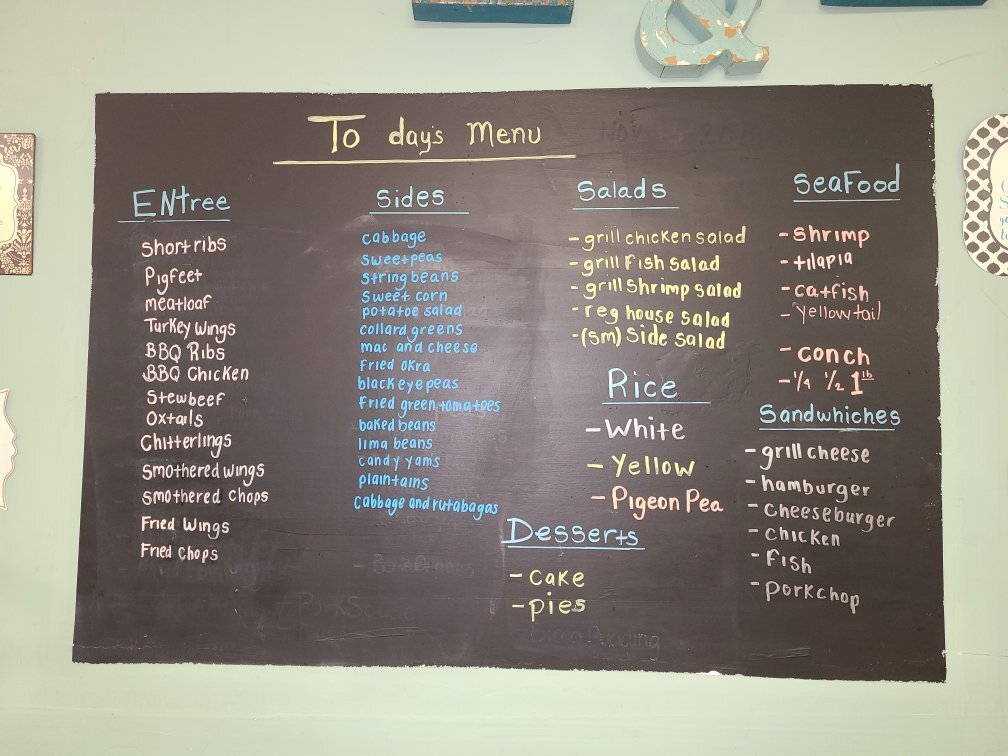 &
To day's Menu
ENtree
Shortribs
Pigfeet
meatloaf
Turkey Wings
BBQ Ribs
BBQ Chicken
Stewbeef
Oxtails
Chitterlings
Smothered wings
Smothered Chops
Fried Wings
Fried Chops
Sides
cabbage
Sweetpeas
String beans
Sweet corn
potatoe salad
collard greens
mac and cheese
Fried okra
black eye peas
Fried green tomatoes
baked beans
lima beans
candy yams
plaintains
Cabbage and rutabagas
Salads
- grill chicken salad
- grill Fish salad
- grill Shrimp salad
- reg house salad
- (sm) Side salad
Rice
- White
- Yellow
- Pigeon Pea
Desserts
- Cake
- pies
SeaFood
- Shrimp
- tilapia
- catfish
- Yellowtail
- Conch
- 1/4 1/2 1 lb
Sandwhiches
- grill cheese
- hamburger
- cheeseburger
- chicken
- Fish
- porkchop